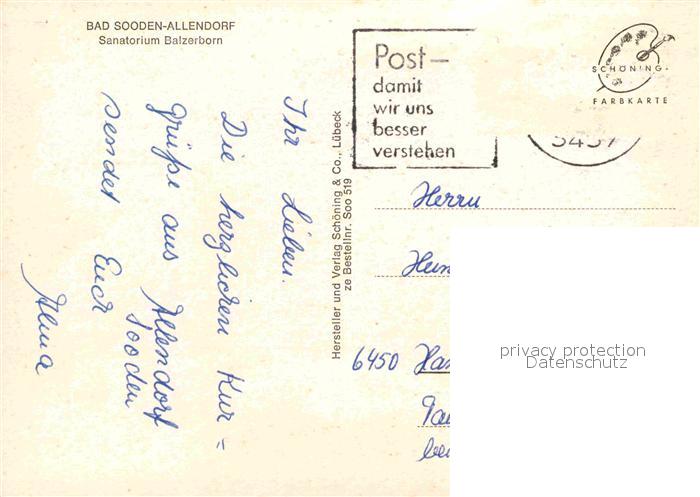 BAD SOODEN-ALLENDORF
Sanatorium Balzerborn
Post—
damit
wir uns
besser
verstehen
SCHÖNING-
FARBKARTE
5437
Ihr Lieben.
Die herzlichen Kur=
grüße aus Allendorf
Sooden
sendet Euch
Alma
Hersteller und Verlag Schöning & Co., Lübeck
ze Bestellnr. Soo 519
Herrn
6450
privacy protection
Datenschutz